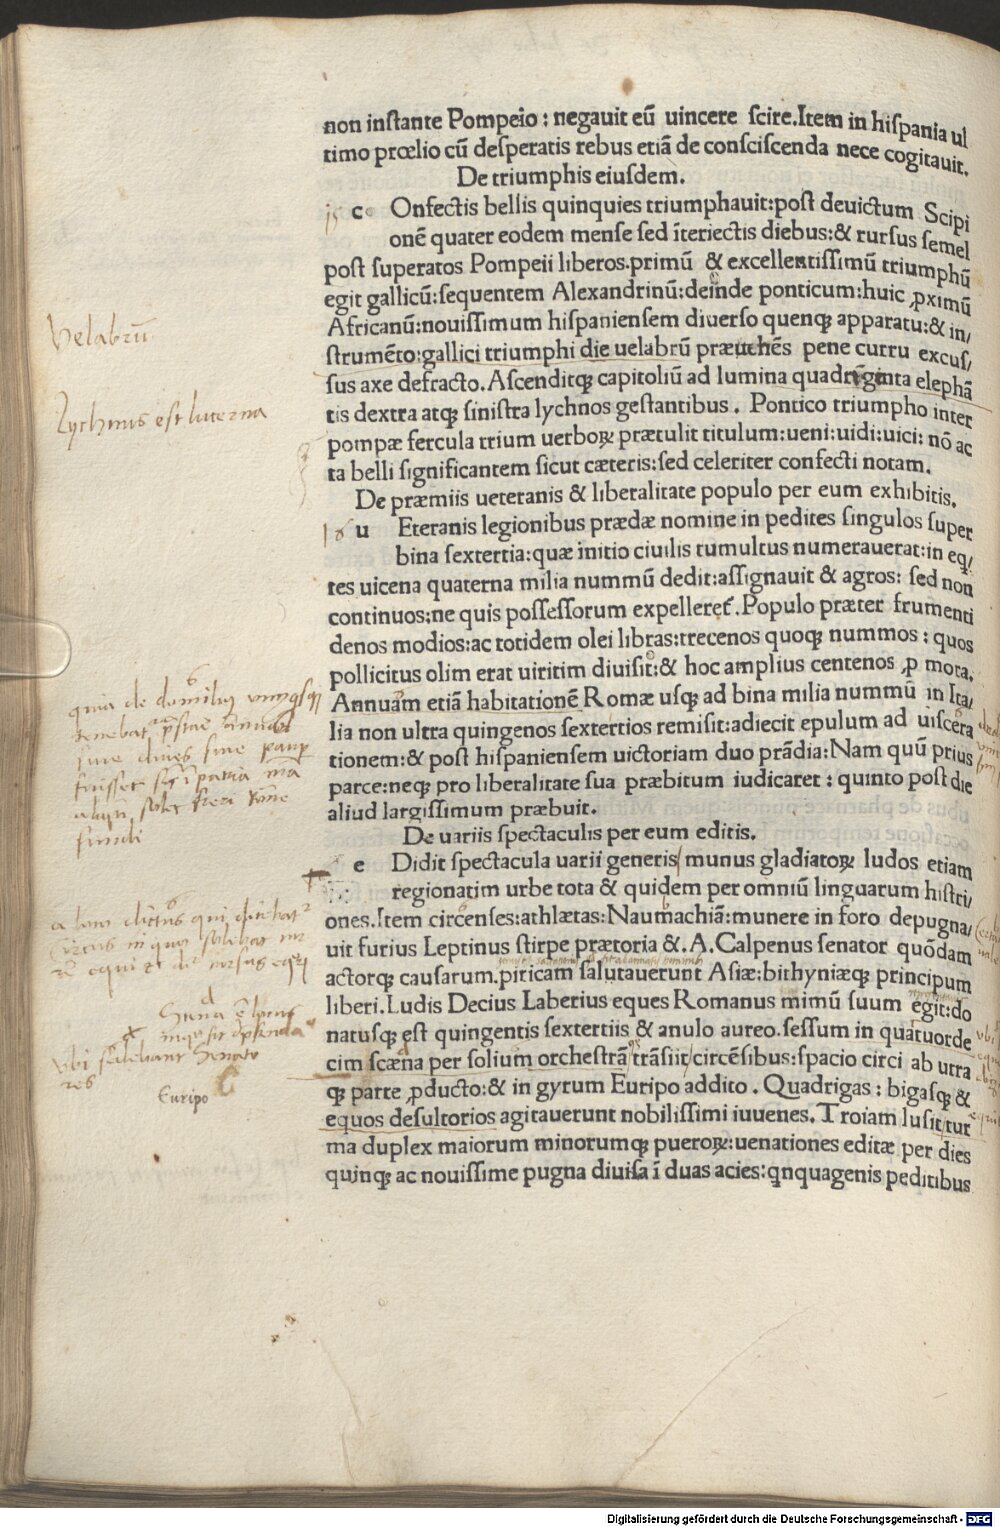 non inſtante Pompeio : negauit eũ uincere ſcire.Item in hiſpania ul
timo prœlio cũ deſperatis rebus etiã de conſciſcenda nece cogitauit.
De triumphis eiuſdem.
c Onfectis bellis quinquies triumphauit:poſt deuictum Scipi
onẽ quater eodem menſe ſed ĩteriectis diebus:& rurſus ſemel
poſt ſuperatos Pompeii liberos.primũ & excellentiſſimũ triumphũ
egit gallicũ:ſequentem Alexandrinũ:deinde ponticum:huic ꝓximũ
Africanũ:nouiſſimum hiſpanienſem diuerſo quenqꝫ apparatu:& in/
ſtrumẽto:gallici triumphi die uelabrũ præuehẽs pene curru excuſ/
ſus axe defracto.Aſcenditqꝫ capitoliũ ad lumina quadraginta elephã
tis dextra atqꝫ ſiniſtra lychnos geſtantibus . Pontico triumpho inter
pompæ fercula trium uerboꝝ prætulit titulum:ueni:uidi:uici: nõ ac
ta belli ſignificantem ſicut cæteris:ſed celeriter confecti notam.
De præmiis ueteranis & liberalitate populo per eum exhibitis.
16 u Eteranis legionibus prædæ nomine in pedites ſingulos ſuper
bina ſextertia:quæ initio ciuilis tumultus numerauerat:in eq/
tes uicena quaterna milia nummũ dedit:aſſignauit & agros: ſed non
continuos:ne quis poſſeſſorum expelleret̃.Populo præter frumenti
denos modios:ac totidem olei libras:trecenos quoqꝫ nummos : quos
pollicitus olim erat uiritim diuiſit:& hoc amplius centenos ꝓ mora.
Annuam etiã habitationẽ Romæ uſqꝫ ad bina milia nummũ in Ita/
lia non ultra quingenos ſextertios remiſit:adiecit epulum ad uiſcera
tionem:& poſt hiſpanienſem uictoriam duo prãdia:Nam quũ prius
parce:neqꝫ pro liberalitate ſua præbitum iudicaret : quinto poſt die
aliud largiſſimum præbuit.
De uariis ſpectaculis per eum editis.
e Didit ſpectacula uarii generis munus gladiatoꝝ ludos etiam
regionatim urbe tota & quidem per omniũ linguarum hiſtri/
ones.Item circenſes:athlætas:Naumachiã:munere in foro depugna/
uit furius Leptinus ſtirpe prætoria &.A.Calpenus ſenator quõdam
actorqꝫ cauſarum.piricam ſalutauerunt Aſiæ:bithyniæqꝫ principum
liberi.Ludis Decius Laberius eques Romanus mimũ ſuum egit:do
natuſqꝫ eſt quingentis ſextertiis & anulo aureo.ſeſſum in quatuorde
cim ſcæna per ſolium orcheſtrã trãſiit circẽſibus:ſpacio circi ab utra
qꝫ parte ꝓducto:& in gyrum Euripo addito . Quadrigas : bigaſqꝫ &
equos deſultorios agitauerunt nobiliſſimi iuuenes.Troiam luſit tur
ma duplex maiorum minorumqꝫ pueroꝝ:uenationes editæ per dies
quinqꝫ ac nouiſſime pugna diuiſa ĩ duas acies:qnquagenis peditibus
Velabrũ
Lychnus est luterna
Euripo
Digitalisierung gefördert durch die Deutsche Forschungsgemeinschaft - DFG